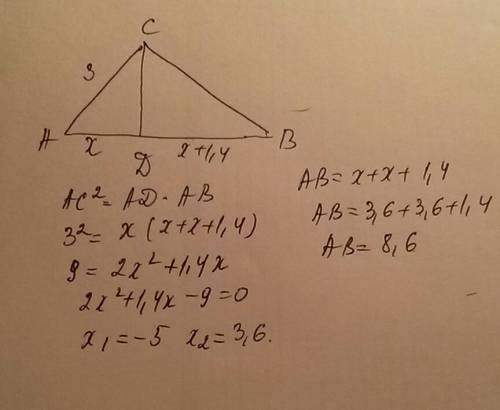 C
3
A x D x+1,4 B
AC²=AD·AB
3²= x(x+x+1,4)
9=2x²+1,4x
2x²+1,4x-9=0
x₁=-5 x₂=3,6.
AB=x+x+1,4
AB=3,6+3,6+1,4
AB=8,6